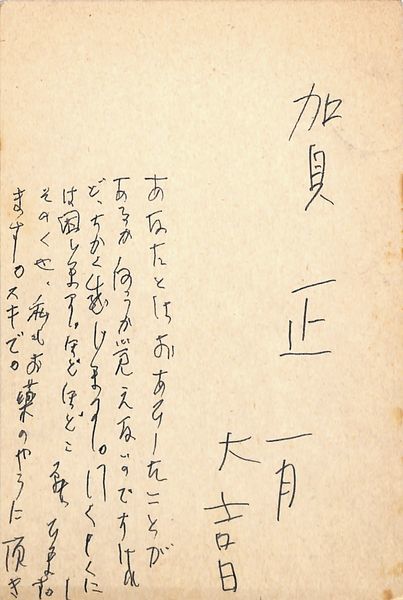 賀正
一月
大吉日
あなたとはおあひしたことが
あるか何うか覚えないのですけれ
ど、ちかく感じます。
は困ります。ほどほどに
そのくせ、私もお薬のやうに頂き
ます。スキデ